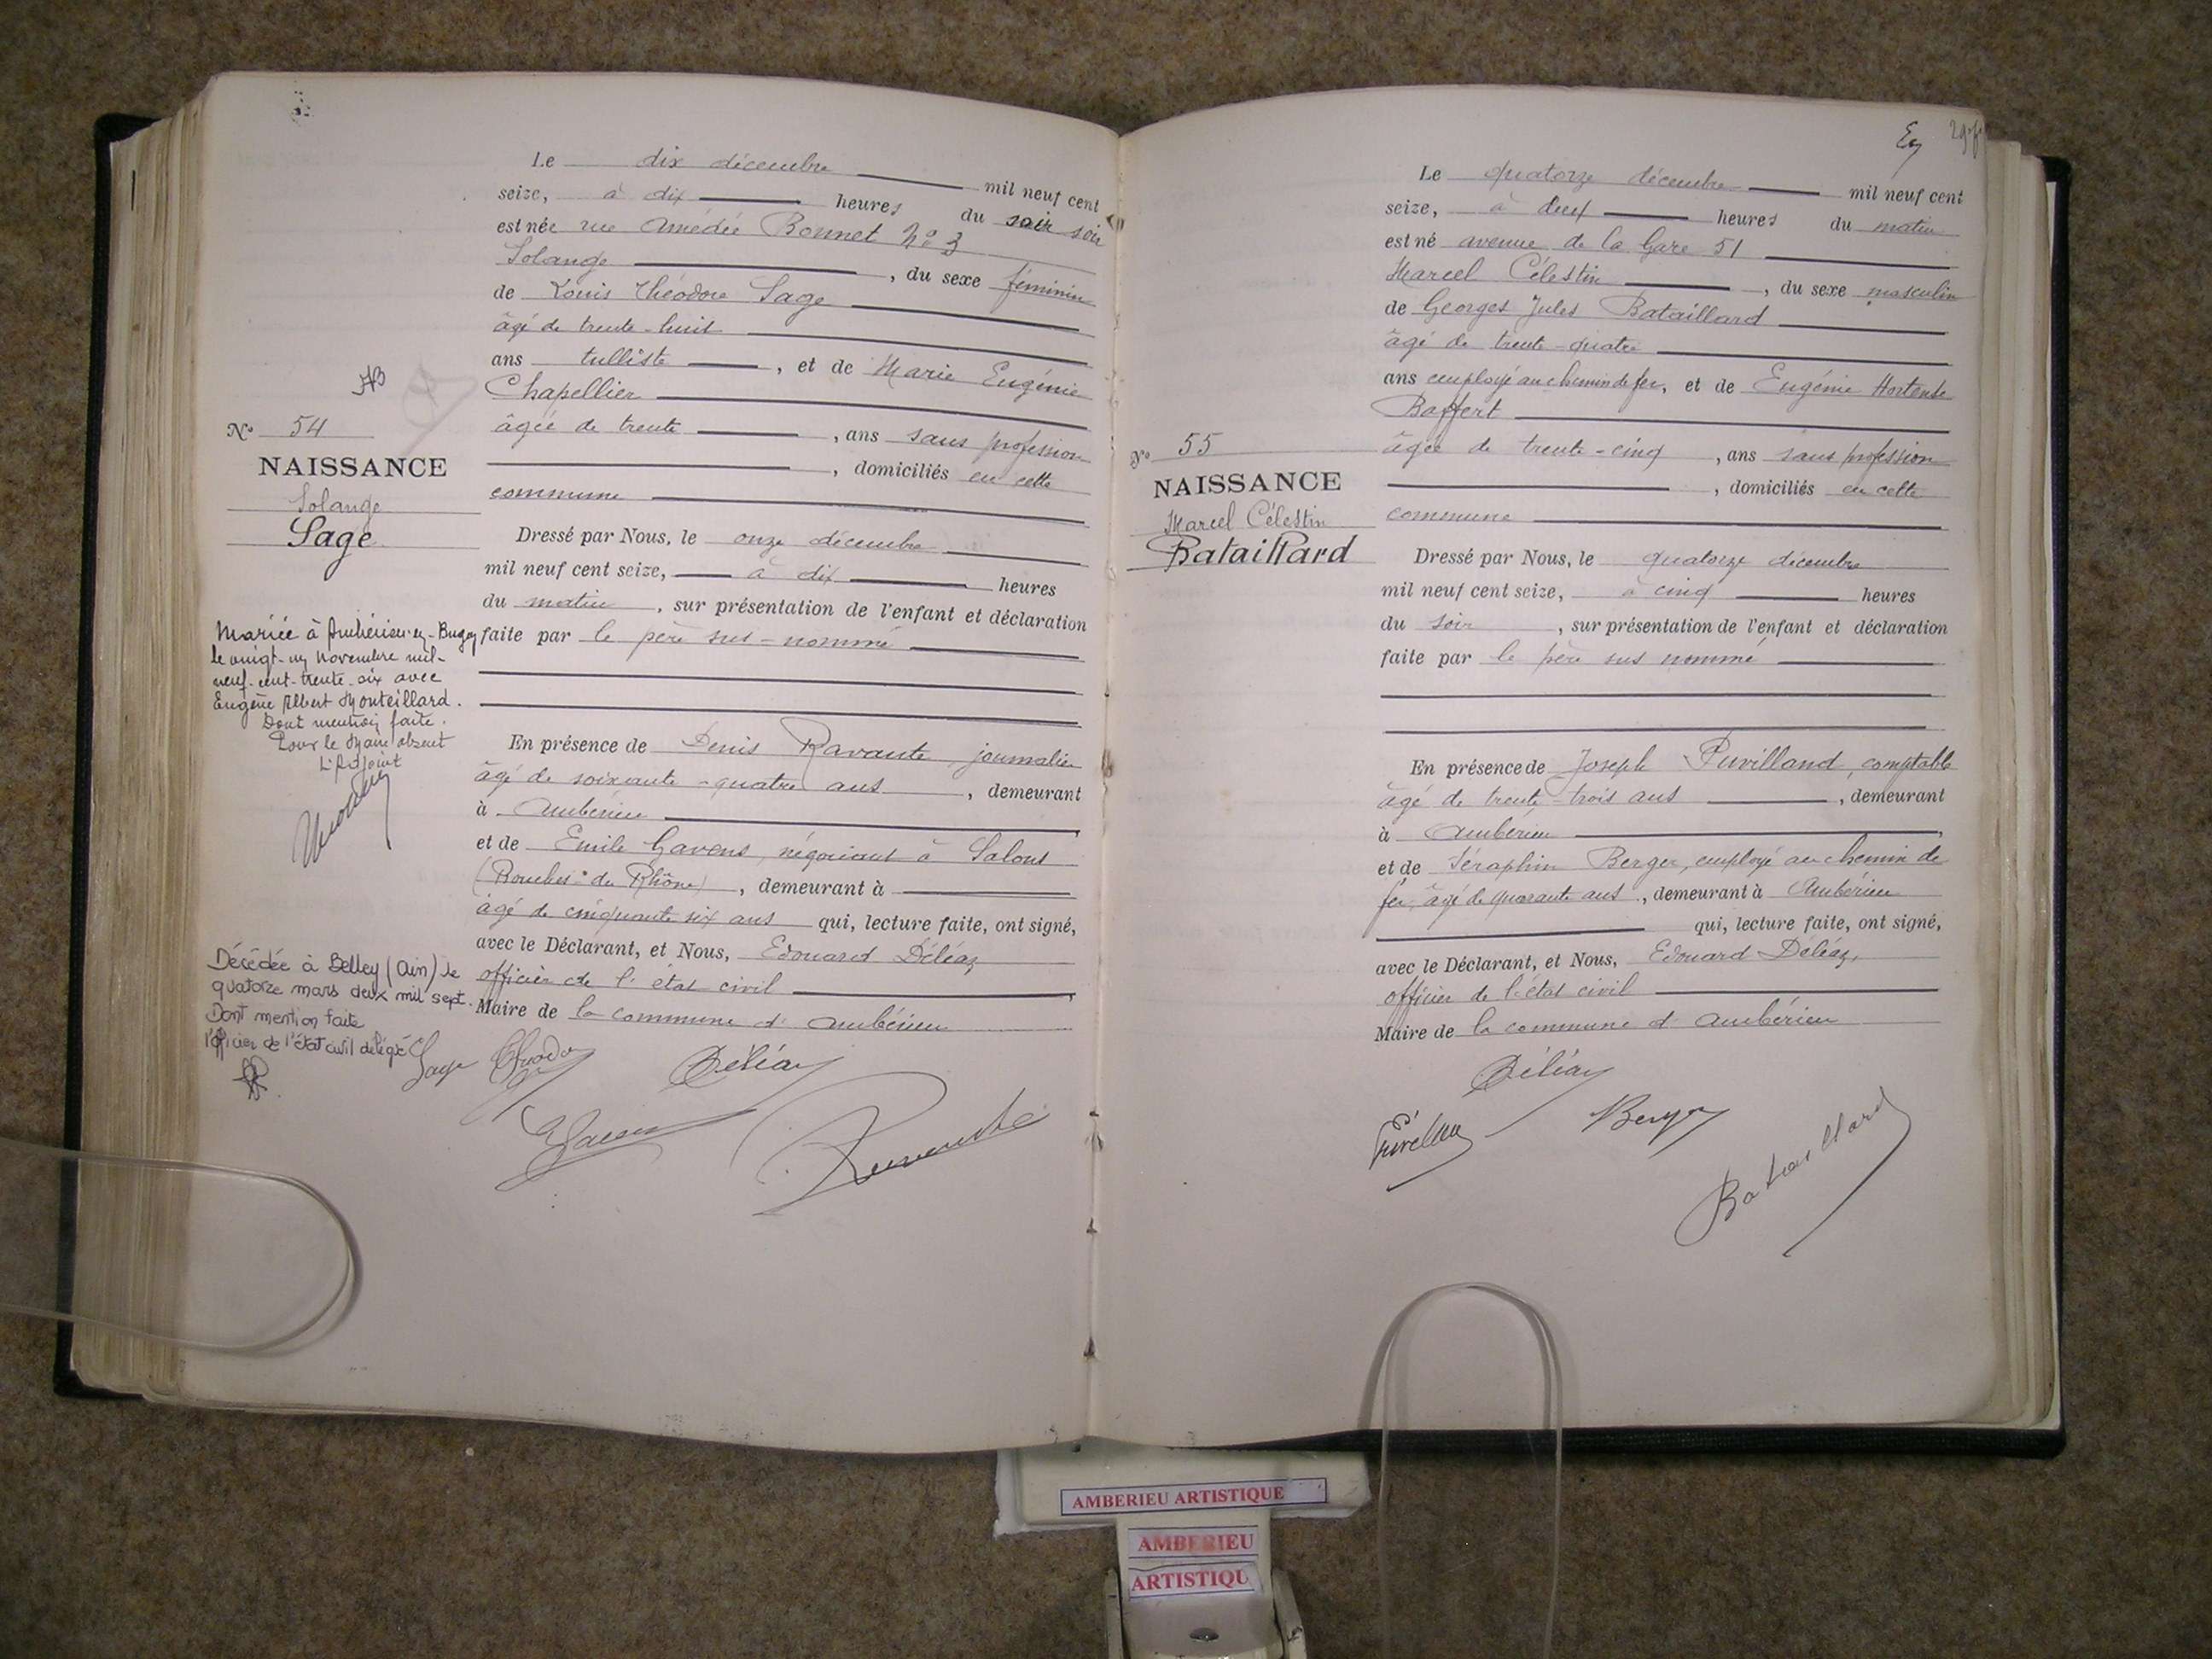 Le dix décembre mil neuf cent
seize, à dix heures du soir soir
est née rue Amédée Bonnet No 3
Solange, du sexe féminin
de Louis Théodore Sage
âgé de trente-huit
ans tulliste, et de Marie Eugénie
Chapellier
âgée de trente, ans sans profession
, domiciliés en cette
commune
Dressé par Nous, le onze décembre
mil neuf cent seize, à dix heures
du matin, sur présentation de l'enfant et déclaration
faite par le père sus-nommé
En présence de Denis Ravaute, journalier
âgé de soixante-quatre ans, demeurant
à Ambérieu
et de Emile Gavens, négociant à Salons
(Bouches du Rhône), demeurant à
âgé de cinquante six ans qui, lecture faite, ont signé,
avec le Déclarant, et Nous, Edouard Déléaz
officier de l'état civil
Maire de la commune d'Ambérieu
Sage Déléaz
No 54
NAISSANCE
Solange
Sage
Mariée à Ambérieu-en-Bugey
le vingt-un novembre mil-
neuf-cent-trente-six avec
Eugène Albert Monteillard.
Dont mention faite.
Pour le Maire absent
L'Adjoint
Décédée à Belley (Ain) le
quatorze mars deux mil sept.
Dont mention faite
l'officier de l'état civil délégué
Le quatorze décembre mil neuf cent
seize, à deux heures du matin
est né avenue de la Gare 51
Marcel Célestin, du sexe masculin
de Georges Jules Bataillard
âgé de trente-quatre
ans employé au chemin de fer, et de Eugénie Hortense
Baffert
âgée de trente-cinq, ans sans profession
, domiciliés en cette
commune
Dressé par Nous, le quatorze décembre
mil neuf cent seize, à cinq heures
du soir, sur présentation de l'enfant et déclaration
faite par le père sus nommé
En présence de Joseph Puvilland, comptable
âgé de trente-trois ans, demeurant
à Ambérieu
et de Séraphin Berger, employé au chemin de
fer, âgé de quarante ans, demeurant à Ambérieu
qui, lecture faite, ont signé,
avec le Déclarant, et Nous, Edouard Déléaz,
officier de l'état civil
Maire de la commune d'Ambérieu
Déléaz
Berger
Bataillard
No 55
NAISSANCE
Marcel Célestin
Bataillard
AMBERIEU ARTISTIQUE
AMBERIEU
ARTISTIQU